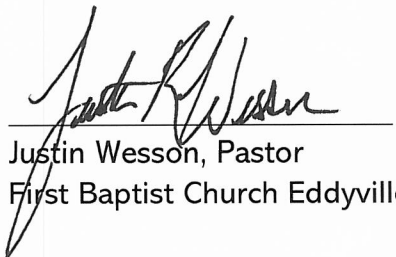 Justin R Wesson
Justin Wesson, Pastor
First Baptist Church Eddyville